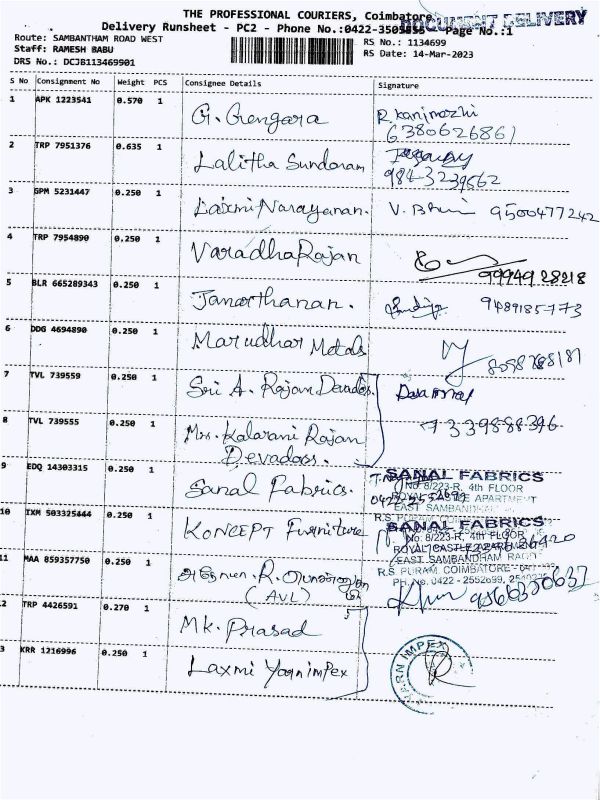 THE PROFESSIONAL COURIERS, Coimbatore.
DOCUMENT DELIVERY
Delivery Runsheet - PC2 - Phone No.:0422-3503555 Page No.:1
Route: SAMBANTHAM ROAD WEST
RS No.: 1134699
Staff: RAMESH BABU
RS Date: 14-Mar-2023
DRS No.: DCJB113469901
S No Consignment No Weight PCS Consignee Details Signature
1 APK 1223541 0.570 1 G. Gengara R. Kanimozhi
6380626861
2 TRP 7951376 0.635 1 Lalitha Sundaram
9843239562
3 GPM 5231447 0.250 1 Laxmi Narayanan. V. 9500477242
4 TRP 7954890 0.250 1 VaradhaRajan
9994928218
5 BLR 665289343 0.250 1 Janarthanan. 9489185773
6 DDG 4694890 0.250 1 Marudhar Metals
7 TVL 739559 0.250 1 Sri A. Rajan Devados.
8 TVL 739555 0.250 1 Mrs. Kalarani Rajan 7339888396
Devadoss.
9 EDQ 14303315 0.250 1 Sanal Fabrics.
SANAL FABRICS
No. 8/223-R, 4th FLOOR
ROYAL CASTLE APARTMENT
EAST SAMBANDHAM
10 IXM 503325444 0.250 1 KONCEPT Furniture
SANAL FABRICS
No: 8/223-R, 4th FLOOR
ROYAL CASTLE APARTMENT
EAST SAMBANDHAM ROAD
R.S PURAM COIMBATORE
PH. No. 0422 - 2552699,
11 MAA 859357750 0.250 1 R.
(AVL)
9566350637
2 TRP 4426591 0.270 1 MK. Prasad
3 KRR 1216996 0.250 1 Laxmi Yarn impex
YARN IMPEX